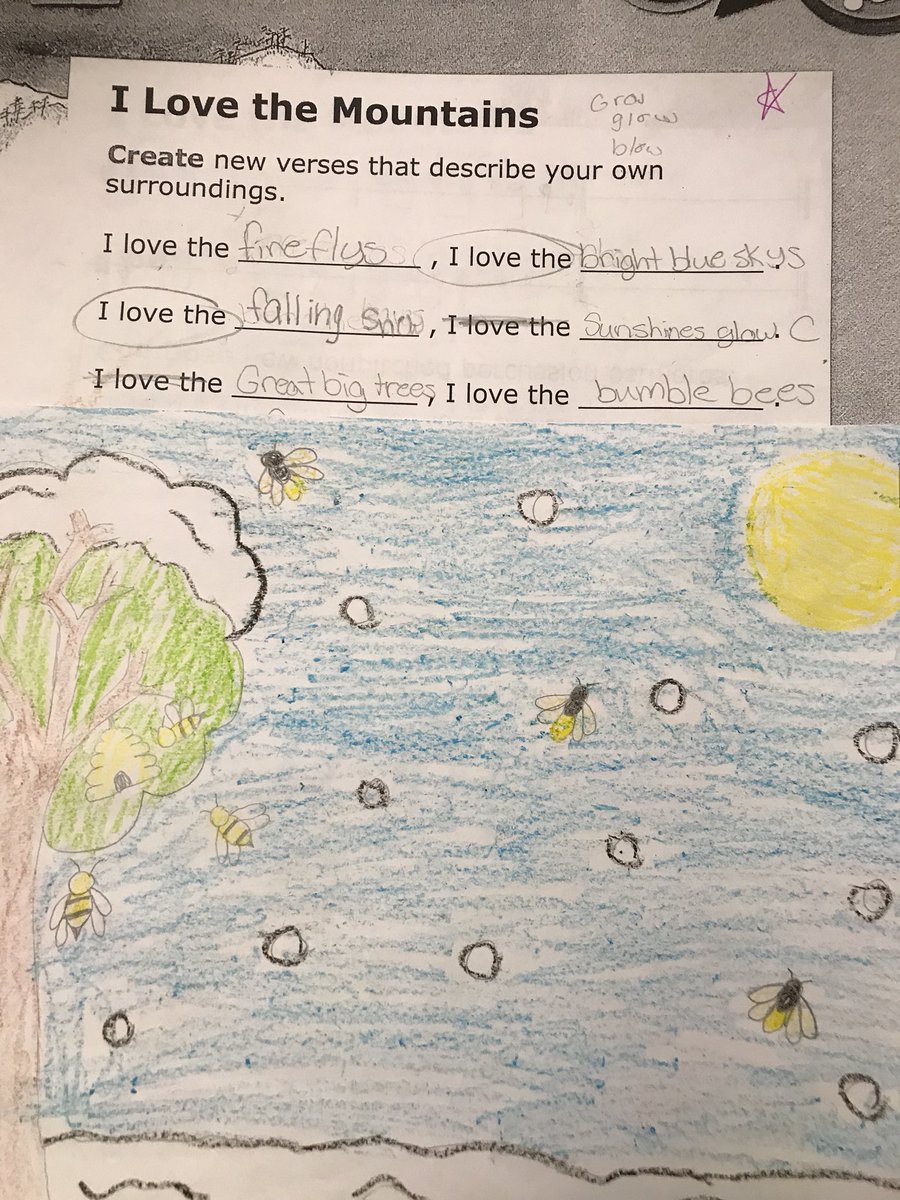 I Love the Mountains
Grow
glow
blow
Create new verses that describe your own
surroundings.
I love the fireflys, I love the bright blue skys.
I love the falling snow, I love the Sunshines glow. C
I love the Great big trees, I love the bumble bees.